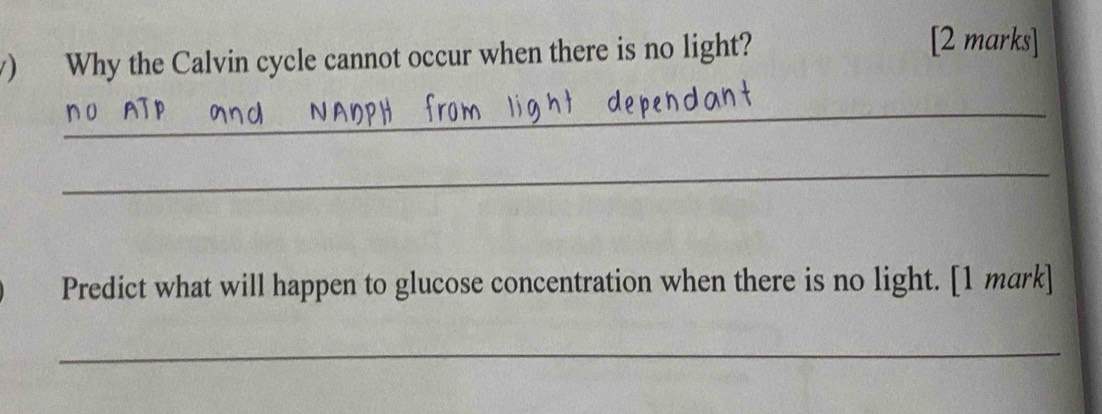 ) Why the Calvin cycle cannot occur when there is no light? [2 marks]
no ATP and NADPH from light dependant
) Predict what will happen to glucose concentration when there is no light. [1 mark]